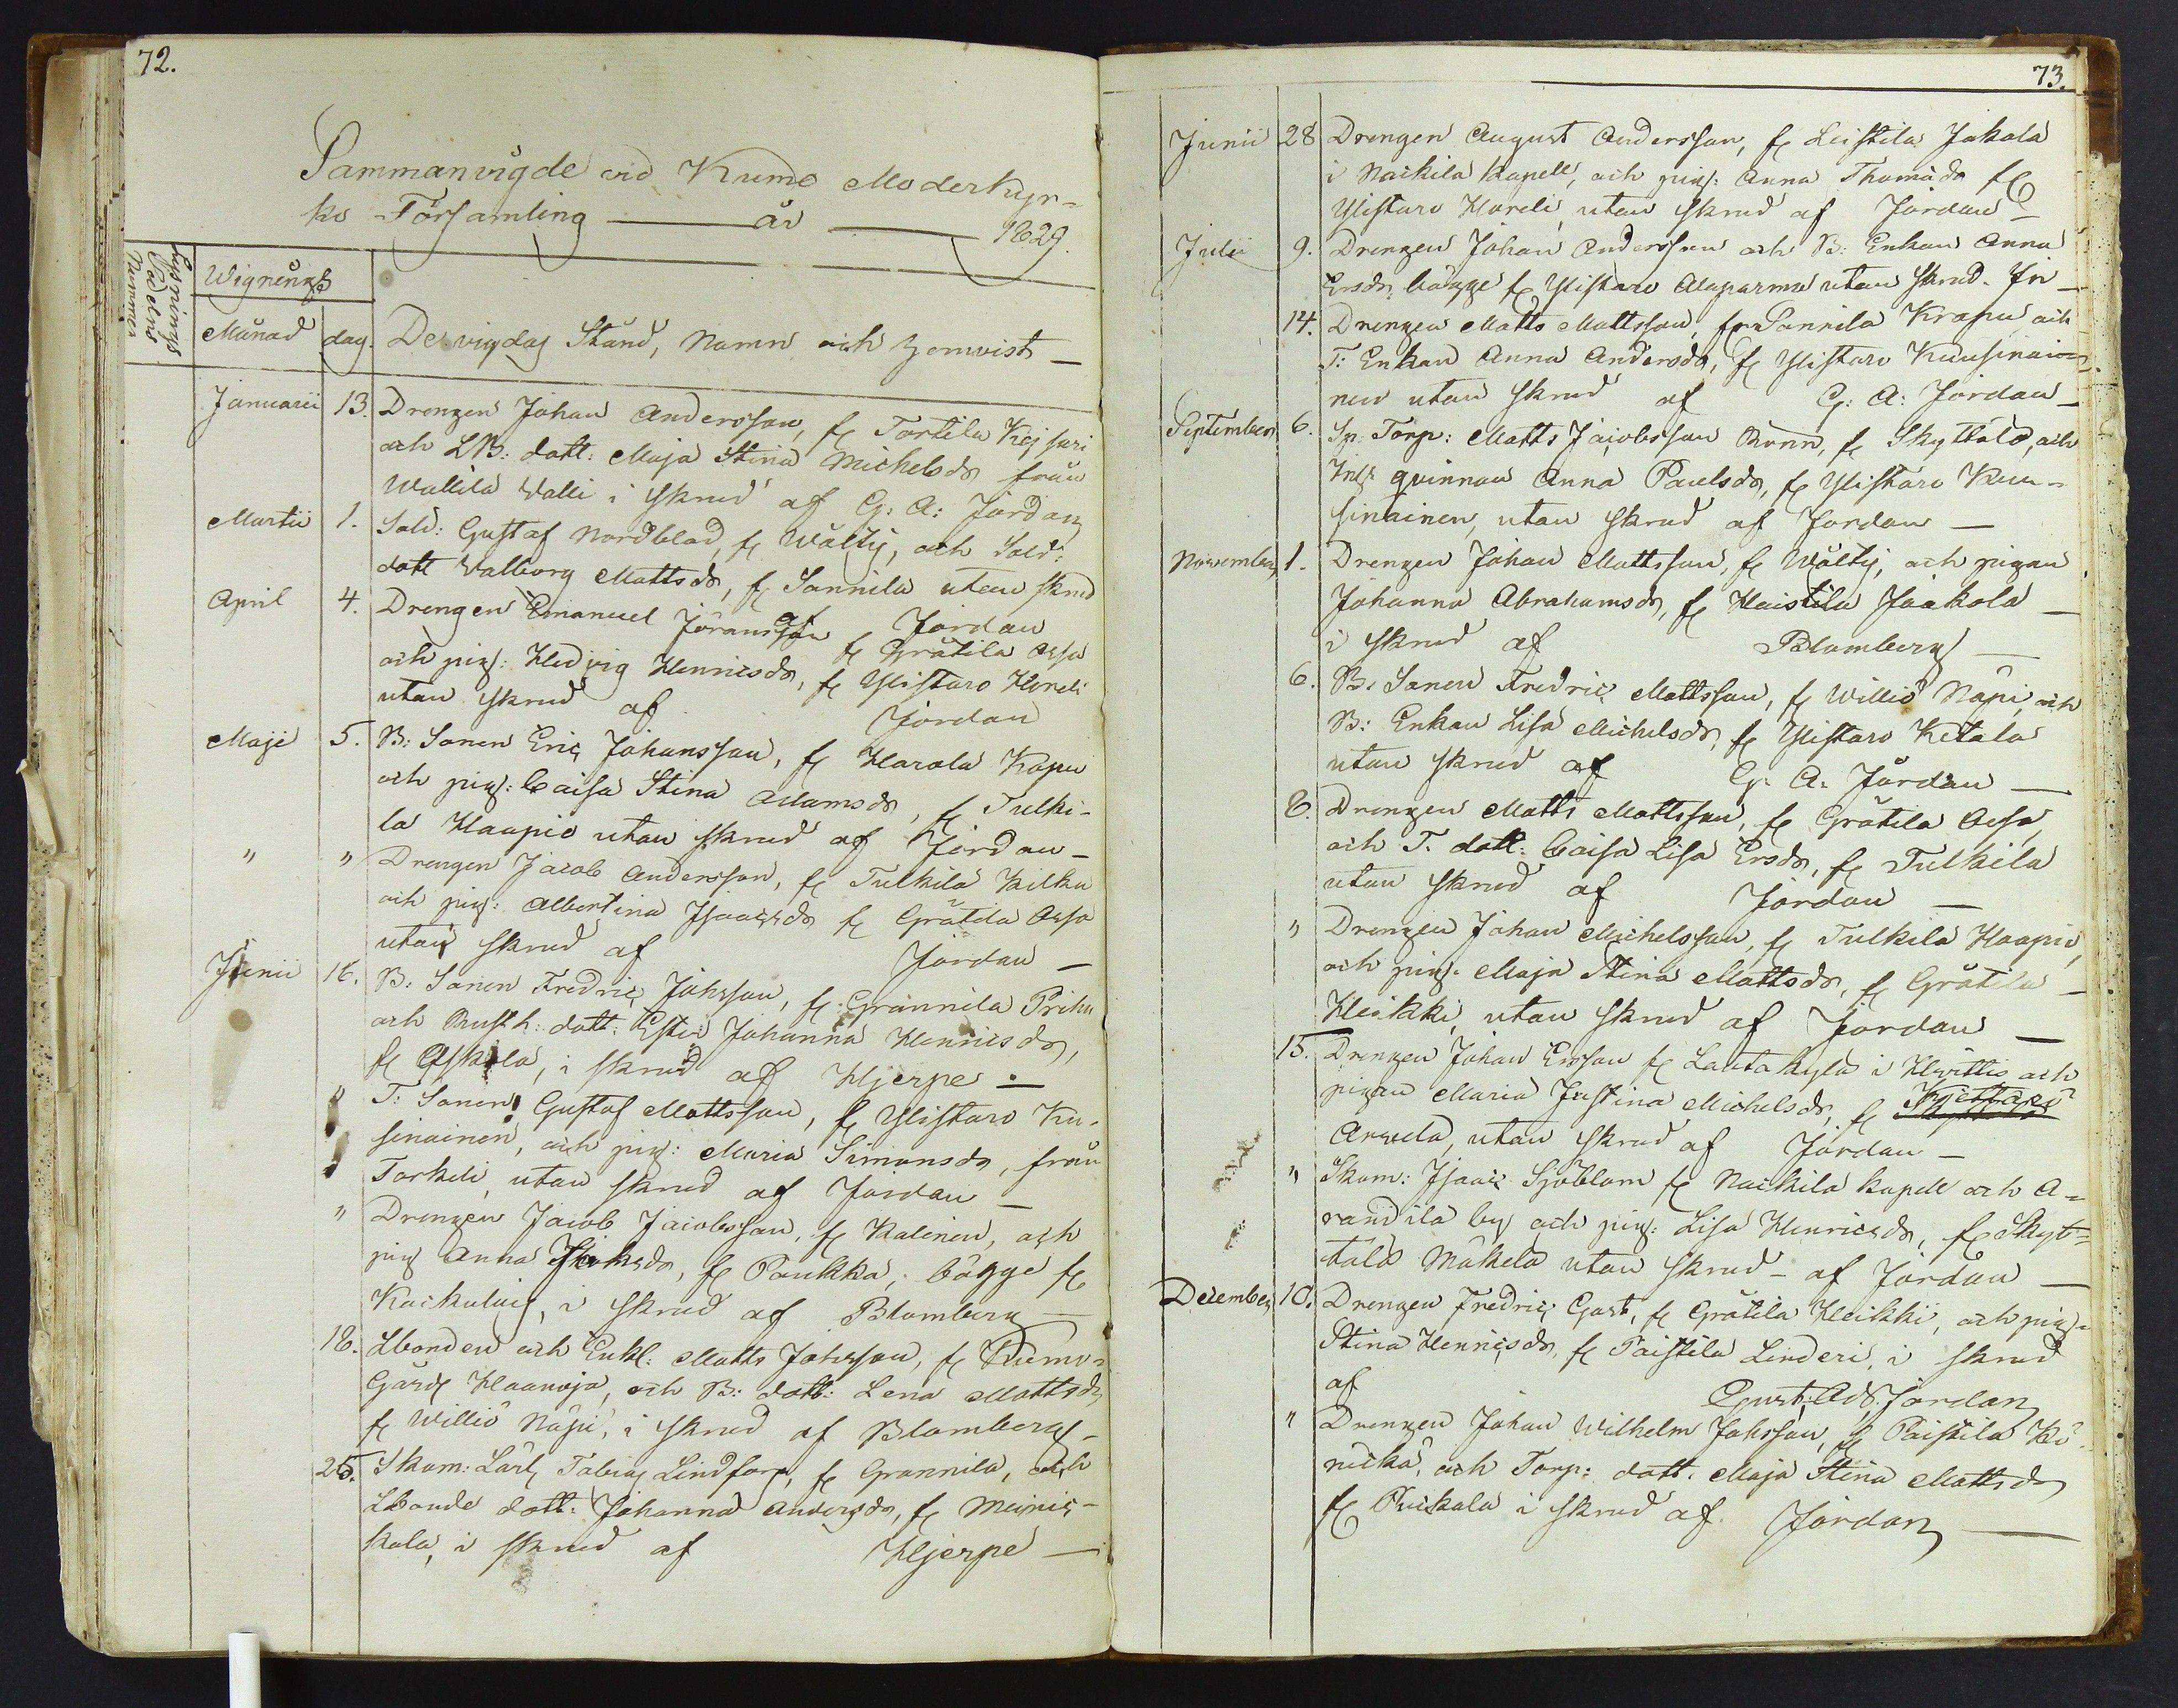 72.
Sammanvigde vid Kumo Moderkyr-
ko-Församling år 1829.
Lysnings Sedelns Nummer
Wignings
Månad dag. De vigdas Stånd, Namn och hemvist
Januarii 13. Drengen Johan Andersson, fr Torttila Kejsari
och LB: dott: Maja Stina Michelsdr från
Wallila Valli i skrud af G: A: Jordan
Martii 1. Sold: Gustaf Nordblad, fr Wälttÿ, och Sold:
dott Valborg Mattsdr, fr Sonnila utan skrud
af Jordan
April 4. Drengen Emanuel Jöransson fr Gråtila Ossa
och pig: Hedvig Henricsdr, fr Ylistaro Horeli
utan skrud af Jordan
Maji 5. B: Sonen Eric Johansson, fr Harola Kopu
och pig: Caisa Stina Adamsdr, fr Tulki-
la Haapio utan skrud af Jordan
" " Drengen Jacob Andersson, fr Tulkila Kilku
och pig: Albertina Isaacsdr fr Gråtila Ossa
utan skrud af Jordan
Junii 16. B: Sonen Fredric Johsson, fr Grannila Prihu
och Rusth: dott: Ester Johanna Henricsdr,
fr Askola, i skrud af Hjerpe
" T: Sonen Gustaf Mattsson, fr Ylistaro Ku-
sinainen, och pig: Maria Simonsdr, från
Torkeli, utan skrud af Jordan
" Drengen Jacob Jacobsson, fr Kalinen, och
pig Anna Johsdr, fr Paukka, bägge fr
Kaskalais, i skrud af Blomberg
18. Lbonden och Enkl: Matts Johsson, fr Kumo-
Gård Haanoja, och B: dott: Lena Mattsdr
fr Williö Näpi, i skrud af Blomberg
25. Skom: Lärl Tobias Lindfors, fr Grannila, och
Lbonde dott: Johanna Andersdr, fr Meinic-
kala, i skrud af Hjerpe
73.
Junii 28 Drengen August Andersson, fr Leistila Jakola
i Nackila Kapell, och pig: Anna Thomasdr fr
Ylistaro Horeli utan skrud af Jordan
Julii 9. Drengen Johan Andersson och B: Enkan Anna
Ersdr, bägge fr Ylistaro Alaparma utan skrud. Jn
14. Drengen Matts Mattsson, fr Sonnila Krapu och
T: Enkan Anna Andersdr, fr Ylistaro Kuusinai-
nen utan skrud af G: A: Jordan
September 6. Sp. Torp: Matts Jacobsson Runn, fr Skyttälä, och
Inh: qvinnan Anna Paulsdr, fr Ylistaro Kuu-
sinainen, utan skrud af Jordan
November 1. Drengen Johan Mattsson, fr Wälttÿ, och pigan
Johanna Abrahamsdr, fr Haistila Jaakola
i skrud af Blomberg
6. B. Sonen Fredric Mattsson, fr Williö Näpi, och
B: Enkan Lisa Michelsdr, fr Ylistaro Ketala
utan skrud af G: A: Jordan
8. Drengen Matts Mattsson, fr Gråtila Ossa,
och T. dott: Caisa Lisa Ersdr, fr Tulkila
utan skrud af Jordan
" Drengen Johan Michelsson, fr Tulkila Haapio,
och pig. Maja Stina Mattsdr, fr Gråtila
Heikki, utan skrud af Jordan
15. Drengen Johan Ersson fr Lautakylä i Hvittis och
pigan Maria Justina Michelsdr, fr
Anvela, utan skrud af Jordan
" Skom: Isaac Sjöblom fr Nackila kapell och A-
randila by och pig: Lisa Henricsdr, fr Skyt-
tälä Mäkelä utan skrud af Jordan
December 10. Drengen Fredric Gast, fr Gråtila Heikki, och pig:
Stina Henricsdr, fr Paistila Linderi, i skrud
af Gust: Ad: Jordan
" Drengen Johan Wilhelm Johsson, fr Paistila Kö-
nickä, och Torp: dott. Maja Stina Mattsdr
fr Kuckola i skrud af Jordan